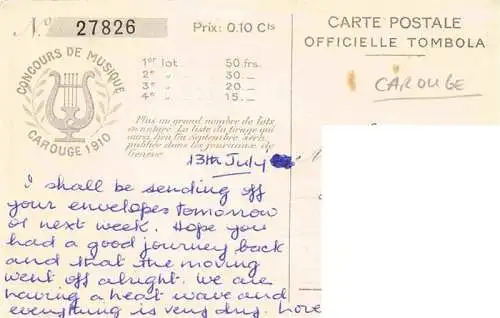 No 27826
Prix: 0.10 Cts
CONCOURS DE MUSIQUE
CAROUGE 1910
1er lot. 50 frs.
2e „ 30.—
3e „ 20.—
4e „ 15.—
Plus un grand nombre de lots
en nature. La liste du tirage qui
aura lieu fin Septembre, sera
publiée dans les journaux de
Genève.
CARTE POSTALE
OFFICIELLE TOMBOLA
CAROUGE
13th July
I shall be sending off
your envelopes tomorrow
or next week. Hope you
had a good journey back
and that the moving
went off alright. We are
having a heat wave and
everything is very dry. Love